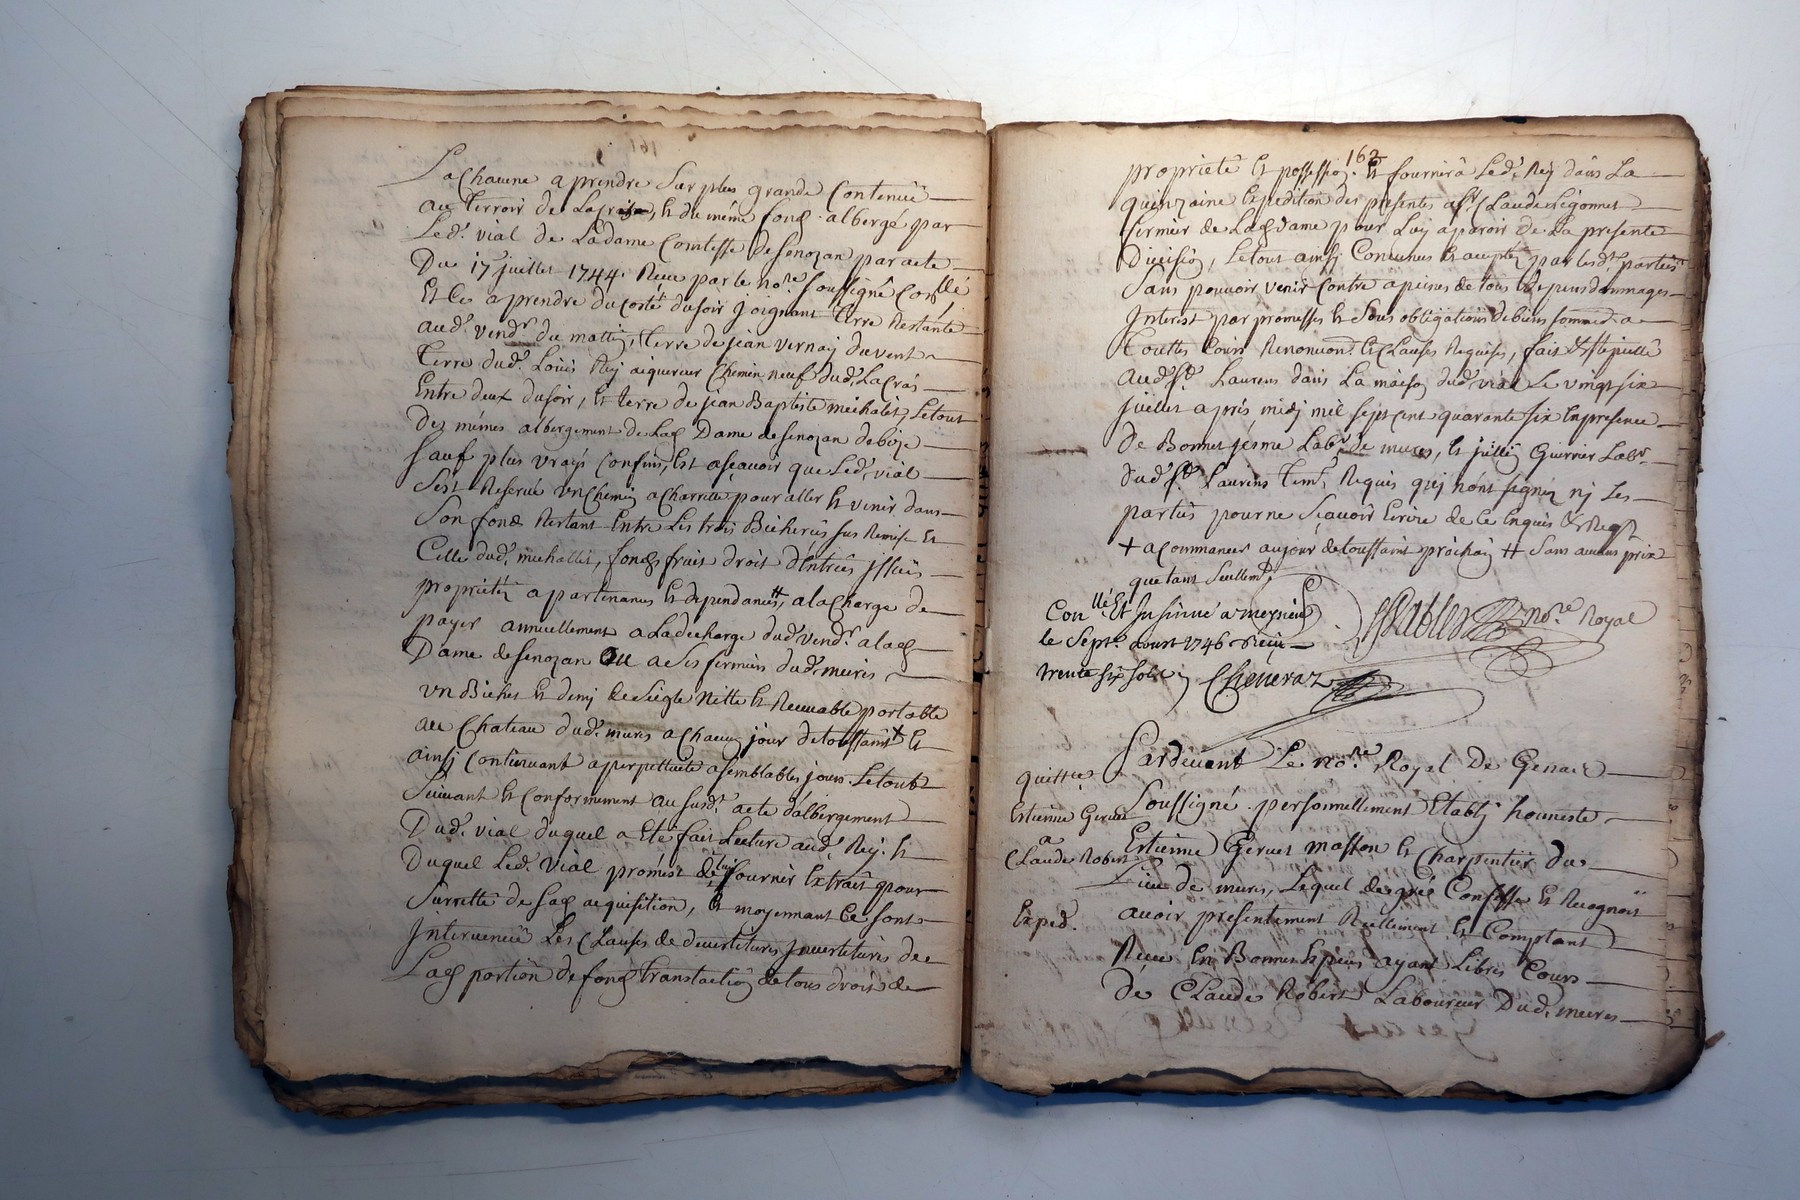 La Chacune a prendre Sur plus grande Contenue
au Terroir de Lacraze, et du même fond albergé par
Led. vial de Ladame Comtesse de senozan par acte
Du 17 juillet 1744. Receu par le nore. soussigné Conllé
Et Ce a prendre du costé dusoir joignant terre Restante
aud. vendr. du mattin, terre de jean vernay duvent
terre dud. Louis Rey aiquereur Chemin neuf dud. Lacras
Entre deux dusoir, et terre de jean Baptiste michalet, Letout
Des mémes albergement de Lad Dame de senozan debize
Sauf plus vrays Confins, Et asçauoir que Led. vial
Sest Reserué vn Chemin a Charrette pour aller et venir dans
Son fond Restant Entre Les trois Bicherés sus Remise et
Celle dud. michallet, fonds fruit droit d'entrées jssües
proprietéz apartenances et dependances ++, a la Charge de
payer annuellement a La decharge dud. vendr. a lad
Dame de senozan Ou a ses fermiers dud. mures
vn Bichet et demy de seigle Nette et Receuable portable
au Chateau dud. mures a Chacun jour de toussaint + et
ainsj Continuant a perpettuité a semblables jours. Letout
Suiuant et Conformement au susd. acte d'albergement
Dud. vial duquel a Eté fait Lecture aud. Rey. et
Duquel Led. vial promist de luy fournir Extrait pour
Surretté de sad acquisition, et moyennant Ce sont
Interuenüe Les Clauses de deuertitures jnuertitures de
Lad portion de fond translaction de tous droits de
162
proprieté et possession. et fournira Led. Rey dans La
quinzaine Expedition des presentes a sr. Claude Ligonnet
fermier de Lad Dame pour Luy aparoir de La presente
Diuision, Letout ainsj Conuenus et acceptez par lesd. parties
Sans pouuoir venir Contre a peines de tous depens dommages
Interest par promesses et sous obligations de biens soumis a
touttes Cours Renoncon. et Clauses Requises, fait et stipullé
Aud. st. Laurens dans La maison dud. vial Le vingt six
juillet aprés midj mil sept cent quarante six En presence
de Bonnet jésme Labr. de mures, et jullien Guerrier Labr.
Dud. st. Laurens tem. Requis quj n'ont signéz nj Les
parties pour ne sçauoir Ecrire de Ce Enquis et Req.
+ a Commancer au jour de toussaint prochain ++ sans aucuns prix
que tant seullemt.
Conllé Et Insinué a meyzieu
le Septe. aoust 1746 Reçu
trente six sols Cheneraz
nore. Royal
quittce
Estienne Geruet
a
Claude Robert
Exped.
Pardeuant Le nore. Royal de Genas
Soussigné personnellement Etablj honneste
Estienne Geruet masson et Charpentier du
Lieu de mures, Lequel degré Confesse et Recognoit
auoir presentement Reellement et Comptant
Receu En Bonnes Especes ayant Libres Cours
de Claude Robert Laboureur Dud. mures